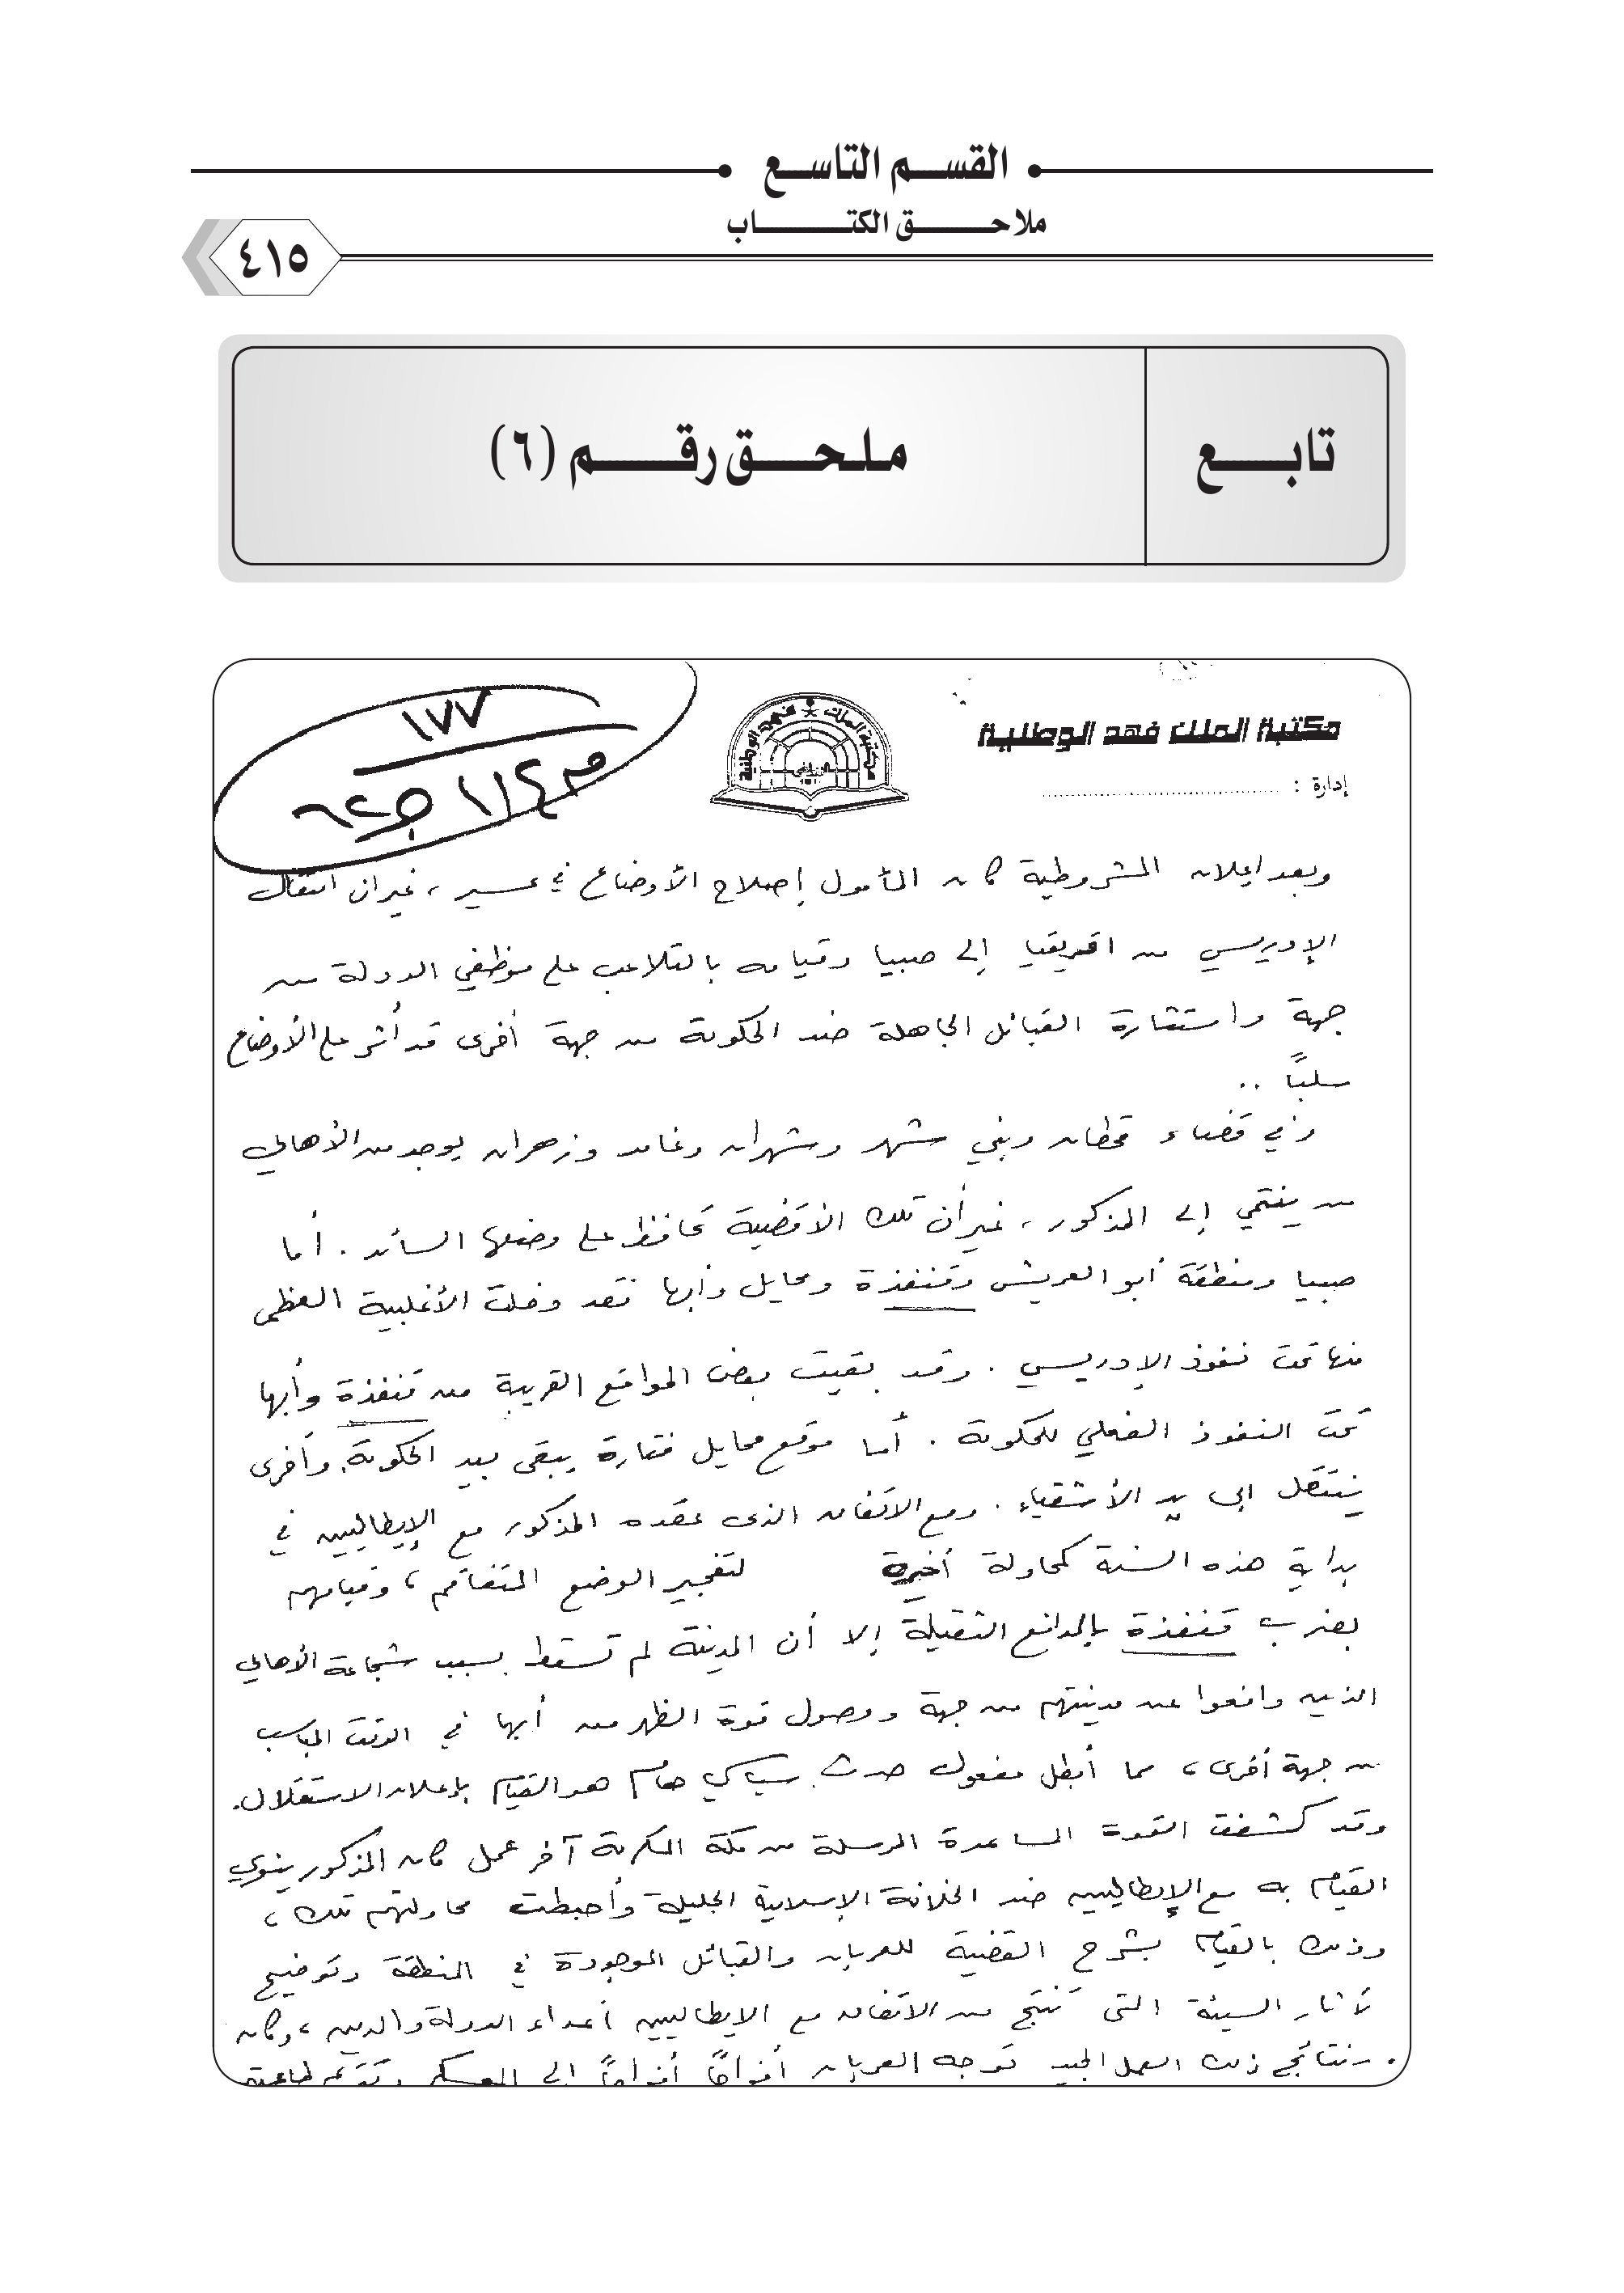 القسم التاسع
ملاحق الكتاب
٤١٥
تابع
ملحق رقم (٦)
مكتبة الملك فهد الوطنية
إدارة :
١٧٧
وبعد إعلان المشروطية كان المأمول إصلاح الأوضاع في عسير ، غير ان انتقال
الإدريسي من افريقيا إلى صبيا وقيامه بالتلاعب على موظفي الدولة من
جهة واستثارة القبائل الجاهلة ضد الحكومة من جهة أخرى قد أثر على الأوضاع
سلبًا ..
وفي قضاء قحطان وبني شهر وشهران وغامد وزهران يوجد من الأهالي
من ينتمي إلى المذكور ، غير أن تلك الأقضية تحافظ على وضعها السائد . أما
صبيا ومنطقة أبو العريش وقنفذة ومحايل وأبها فقد دخلت الأغلبية العظمى
منها تحت نفوذ الإدريسي . وقد بقيت بعض المواقع القريبة من قنفذة وأبها
تحت النفوذ الفعلي للحكومة . أما موقع محايل فتارة يبقى بيد الحكومة وأخرى
ينتقل إلى يد الأشقياء . ومع الاتفاق الذى عقده المذكور مع الإيطاليين في
بداية هذه السنة كمحاولة أخيرة لتفجير الوضع المتفاقم ، وقيامهم
بضرب قنفذة بالمدافع الثقيلة إلا أن المدينة لم تسقط بسبب شجاعة الأهالي
الذين دافعوا عن مدينتهم من جهة ووصول قوة الظهر من أبها في الوقت المناسب
من جهة أخرى ، مما أبطل مفعول حدث سياسي هام هو القيام بإعلان الاستقلال .
وقد كشفت القوة المساعدة المرسلة من مكة المكرمة آخر عمل كان المذكور ينوي
القيام به مع الإيطاليين ضد الخلافة الإسلامية الجليلة وأحبطت محاولتهم تلك ،
وذلك بالقيام بشرح القضية للعربان والقبائل الموجودة في المنطقة وتوضيح
الآثار السيئة التى تنتج من الاتفاق مع الإيطاليين أعداء الدولة والدين ، وكان
نتائج ذلك العمل الجيد توجه العربان أفواجًا أفواجًا إلى المعسكر